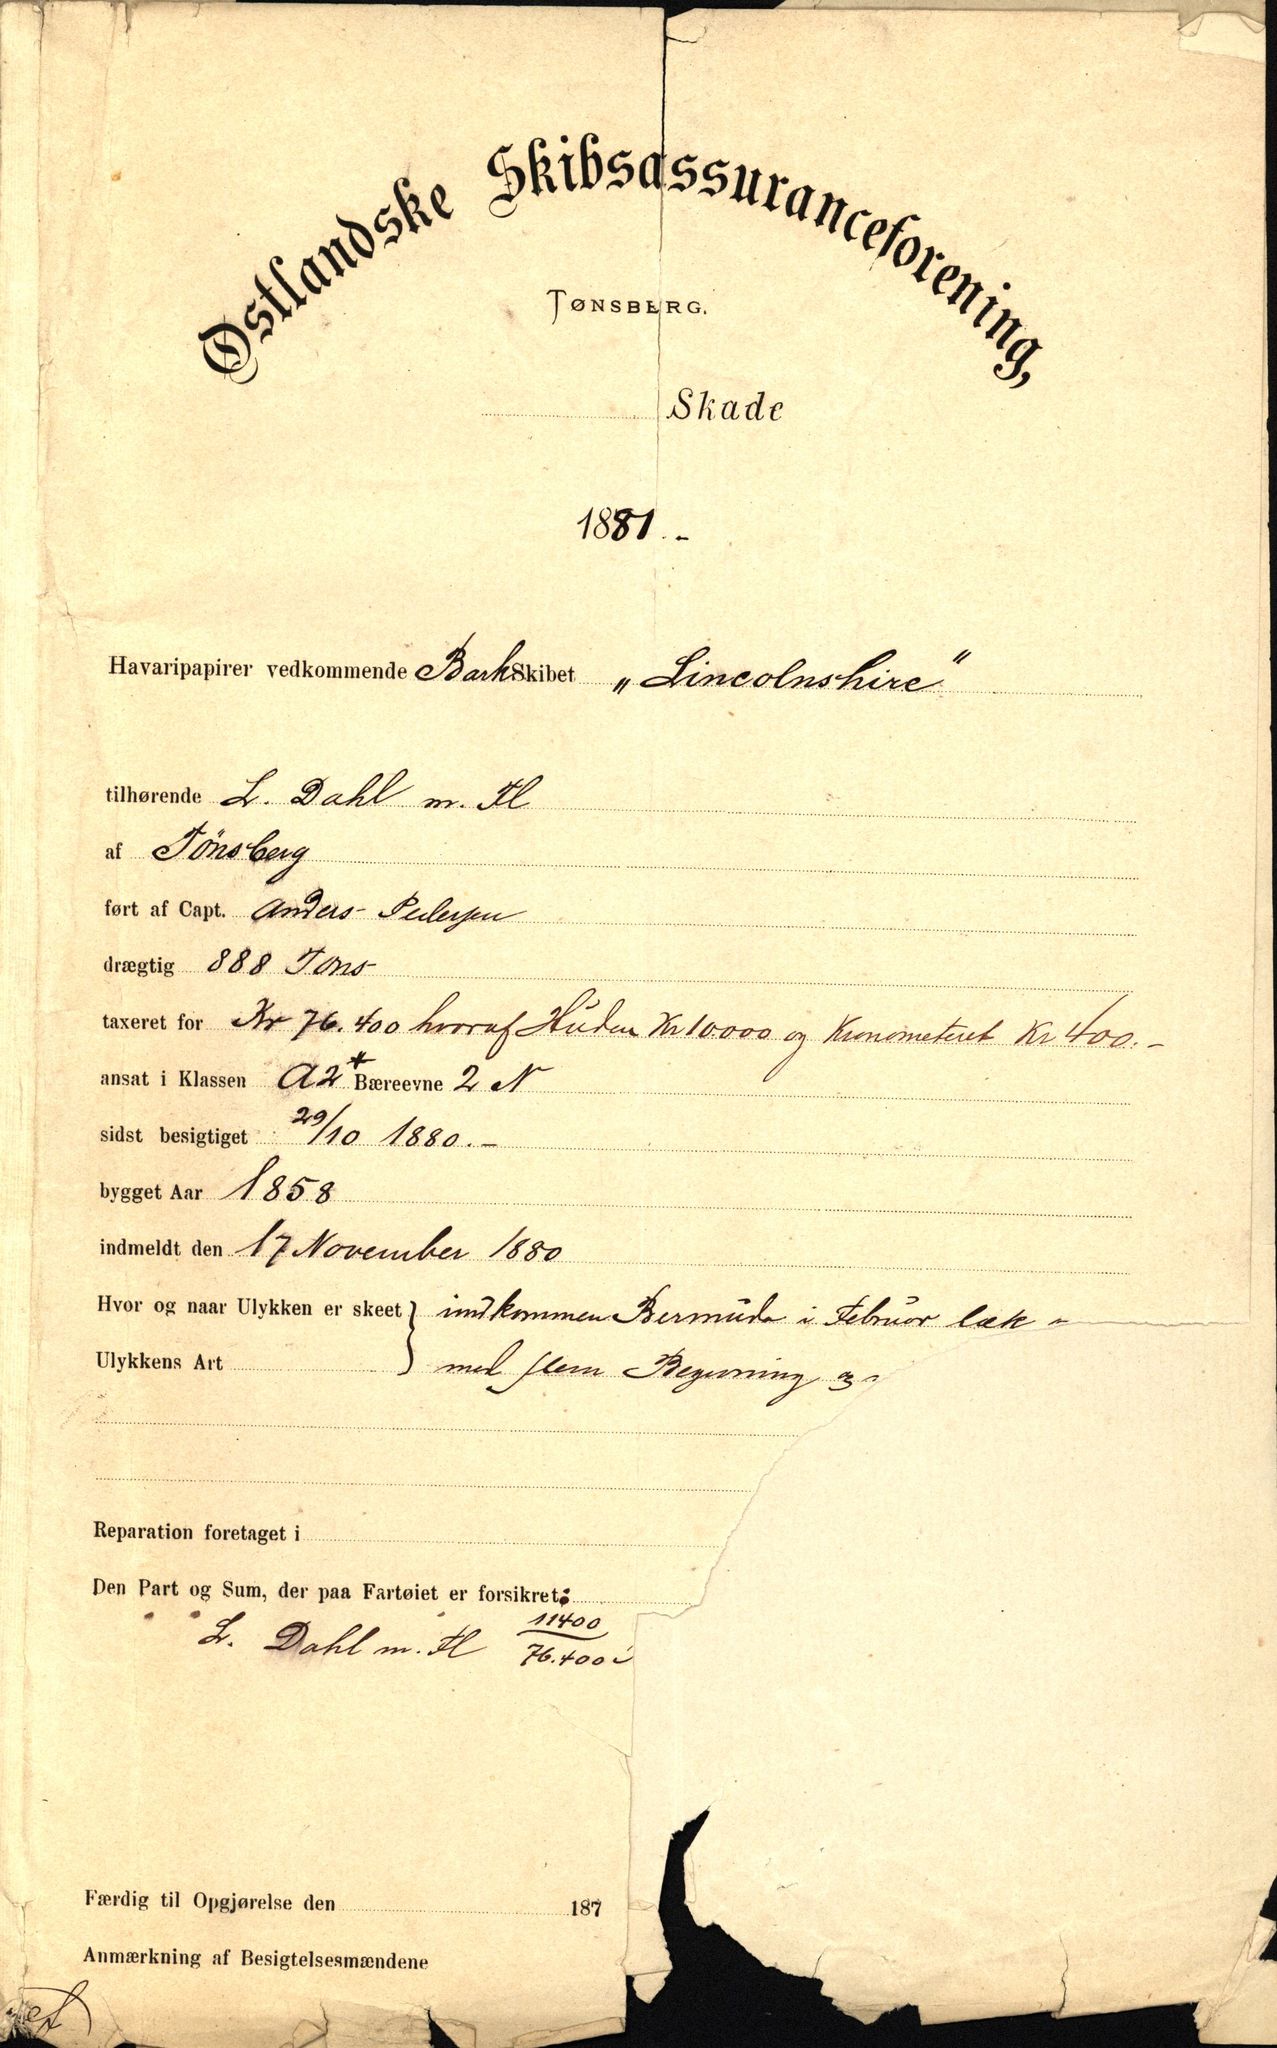 Østlandske Skibsassuranceforening,
TØNSBERG.
Skade
1881.-
Havaripapirer vedkommende Bark Skibet „Lincolnshire"
tilhørende L. Dahl m. Fl
af Tönsberg
ført af Capt. Anders Pedersen
drægtig 888 Tons
taxeret for Kr 76.400 hvoraf Huden Kr 10.000 og Kronometeret Kr 400.-
ansat i Klassen A2* Bæreevne 2 N
sidst besigtiget 29/10 1880.-
bygget Aar 1858
indmeldt den 17 November 1880
Hvor og naar Ulykken er skeet } indkommen Bermuda i Februar læk
Ulykkens Art med og
Reparation foretaget i
Den Part og Sum, der paa Fartøiet er forsikret:
L. Dahl m. Fl 11400/76.400
Færdig til Opgjørelse den 187
Anmærkning af Besigtelsesmændene